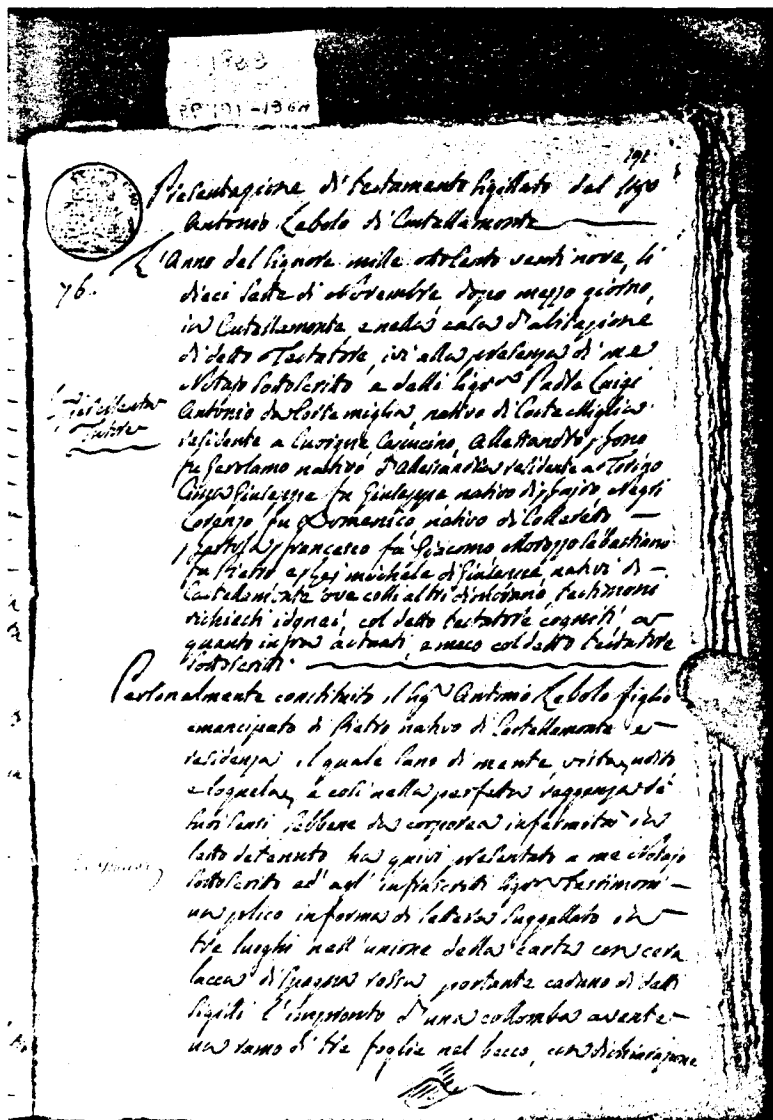 191
Presentazione di testamento sigillato del Sigr
Antonio Lebolo di Castellamonte
L'Anno del Signore mille ottocento venti nove, li
76.
dieci sette di Novembre dopo mezzo giorno,
in Castellamonte e nella casa d'abitazione
di detto Testatore, ivi alla presenza di me
Notaio sottoscritto e delli Sigri Padre Luigi
Antonio da Cortemiglia, nativo di Cortemiglia
residente a Cuorgnè, Alessandro
fu Gerolamo nativo d'Alessandria residente a Torino
Giuseppe fu Giuseppe nativo di Negri
Lorenzo fu Domenico nativo di Colleretto
Francesco fu Giacomo Morozzo Sebastiano
fu Pietro e Michele di Giuseppe, nativi di
Castellamonte ove colli altri testimoni
richiesti idonei, col detto testatore cogniti, a
quanto infra e meco col detto testatore
sottoscritti.
Personalmente constituito il Sigr Antonio Lebolo figlio
emancipato di Pietro nativo di Castellamonte e
residenza il quale sano di mente, vista, udito
e loquela, e così nella perfetta de'
suoi sensi sebbene da corporea infermità in
letto detenuto ha quivi presentato a me Notajo
sottoscritto ed agl'infrascritti Sigri testimoni
un plico in forma di lettera suggellato in
tre luoghi nell'unione della carta con cera
lacca di Spagna rossa portante caduno di detti
sigilli l'impronto d'una collomba avente
un ramo di tre foglie nel becco, con dichiarazione